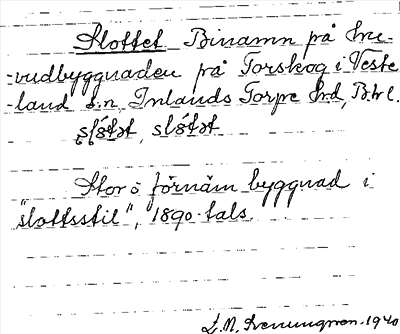 Slottet Binamn på hu-
-vudbyggnaden på Torskog i Veste
-land s.n, Inlands Torpe hd, Bhl.
slǿtǝt, slǿtǝt
Stor o förnäm byggnad i
"slottsstil", 1890-tals.
1940